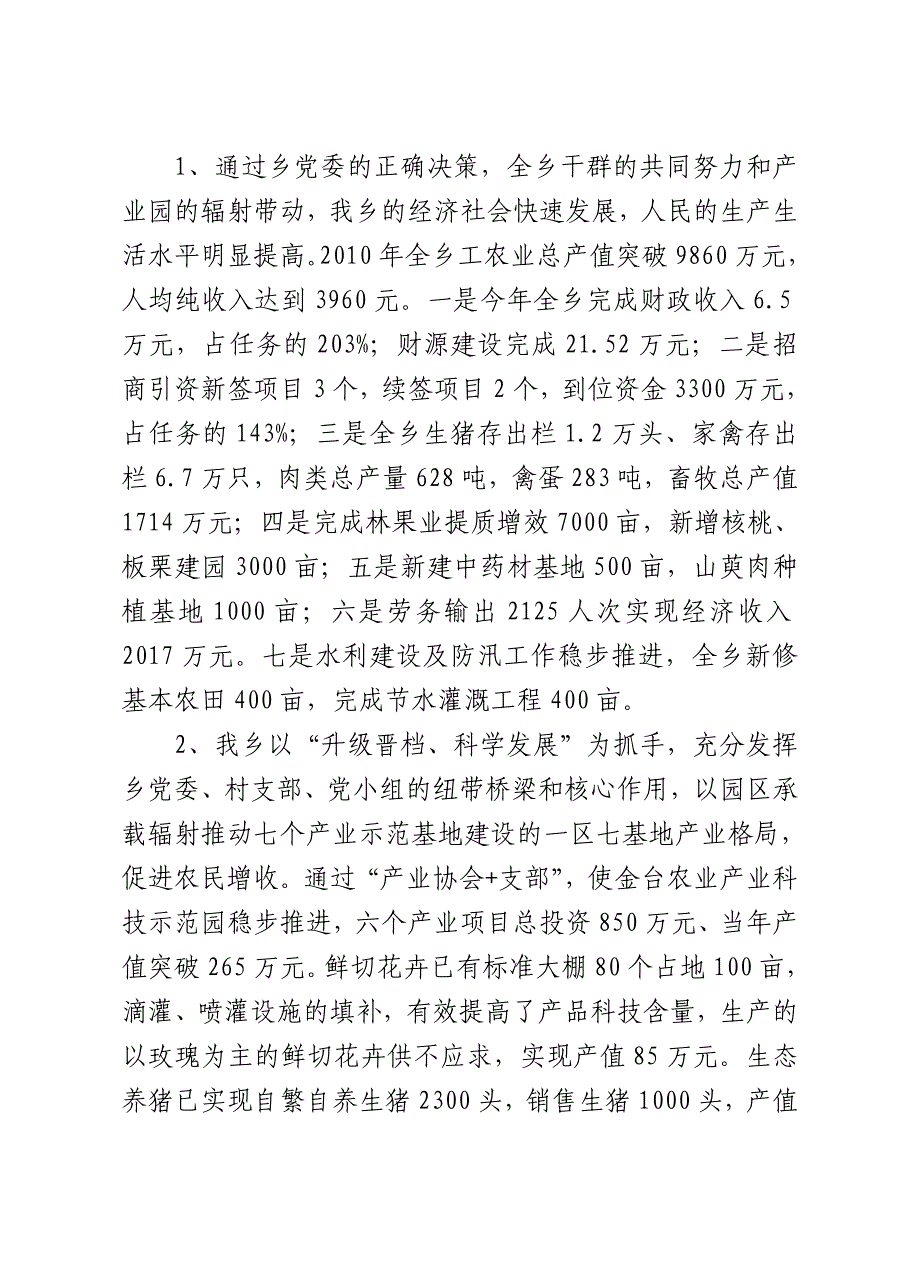 1、通过乡党委的正确决策，全乡干群的共同努力和产
业园的辐射带动，我乡的经济社会快速发展，人民的生产生
活水平明显提高。2010 年全乡工农业总产值突破 9860 万元，
人均纯收入达到 3960 元。一是今年全乡完成财政收入 6.5
万元，占任务的 203%；财源建设完成 21.52 万元；二是招
商引资新签项目 3 个，续签项目 2 个，到位资金 3300 万元，
占任务的 143%；三是全乡生猪存出栏 1.2 万头、家禽存出
栏 6.7 万只，肉类总产量 628 吨，禽蛋 283 吨，畜牧总产值
1714 万元；四是完成林果业提质增效 7000 亩，新增核桃、
板栗建园 3000 亩；五是新建中药材基地 500 亩，山萸肉种
植基地 1000 亩；六是劳务输出 2125 人次实现经济收入
2017 万元。七是水利建设及防汛工作稳步推进，全乡新修
基本农田 400 亩，完成节水灌溉工程 400 亩。
2、我乡以“升级晋档、科学发展”为抓手，充分发挥
乡党委、村支部、党小组的纽带桥梁和核心作用，以园区承
载辐射推动七个产业示范基地建设的一区七基地产业格局，
促进农民增收。通过“产业协会+支部”，使金台农业产业科
技示范园稳步推进，六个产业项目总投资 850 万元、当年产
值突破 265 万元。鲜切花卉已有标准大棚 80 个占地 100 亩，
滴灌、喷灌设施的填补，有效提高了产品科技含量，生产的
以玫瑰为主的鲜切花卉供不应求，实现产值 85 万元。生态
养猪已实现自繁自养生猪 2300 头，销售生猪 1000 头，产值